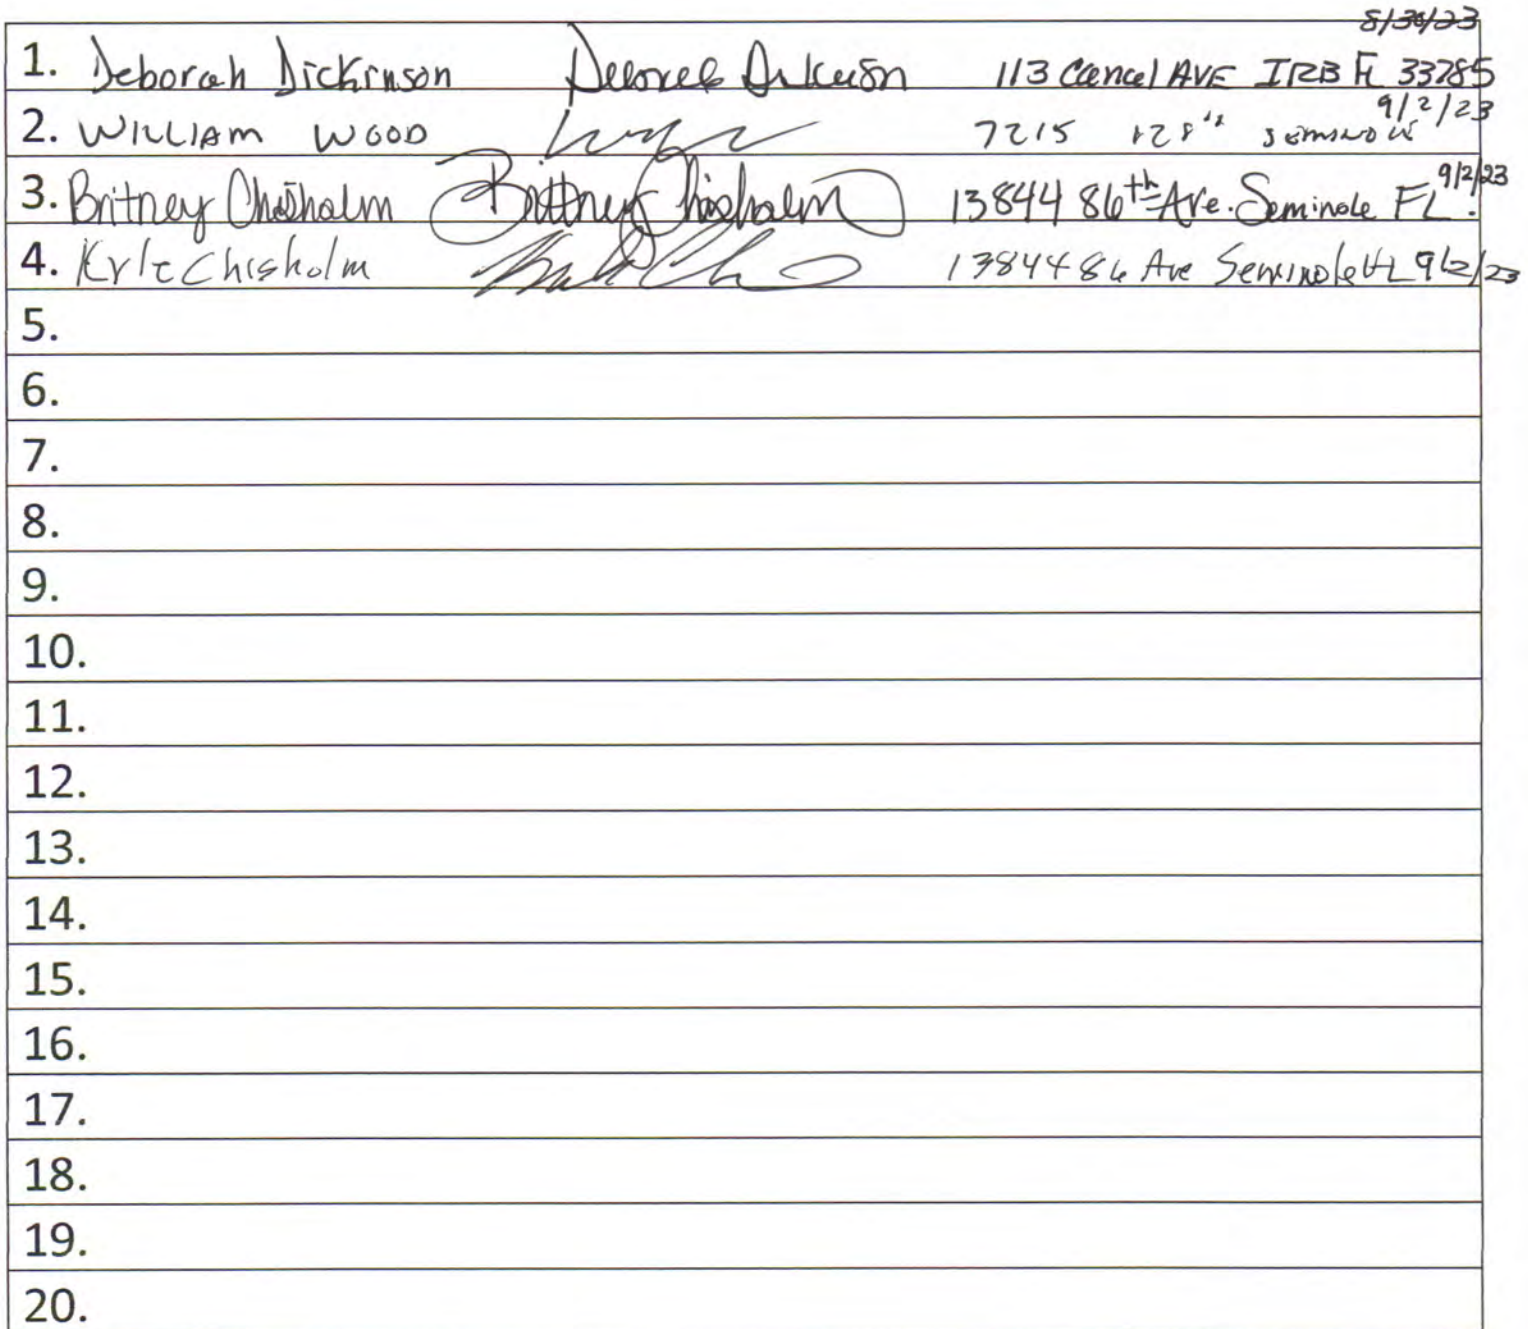 8/30/23
1. Deborah Dickinson 113 Canal AVE IRB FL 33785
9/2/23
2. WILLIAM WOOD 7215 128th
3. Britney Chisholm Brittney Chisholm 13844 86th Ave. Seminole FL. 9/2/23
4. Kyle Chisholm 13844 86 Ave Seminole FL 9/2/23
5.
6.
7.
8.
9.
10.
11.
12.
13.
14.
15.
16.
17.
18.
19.
20.